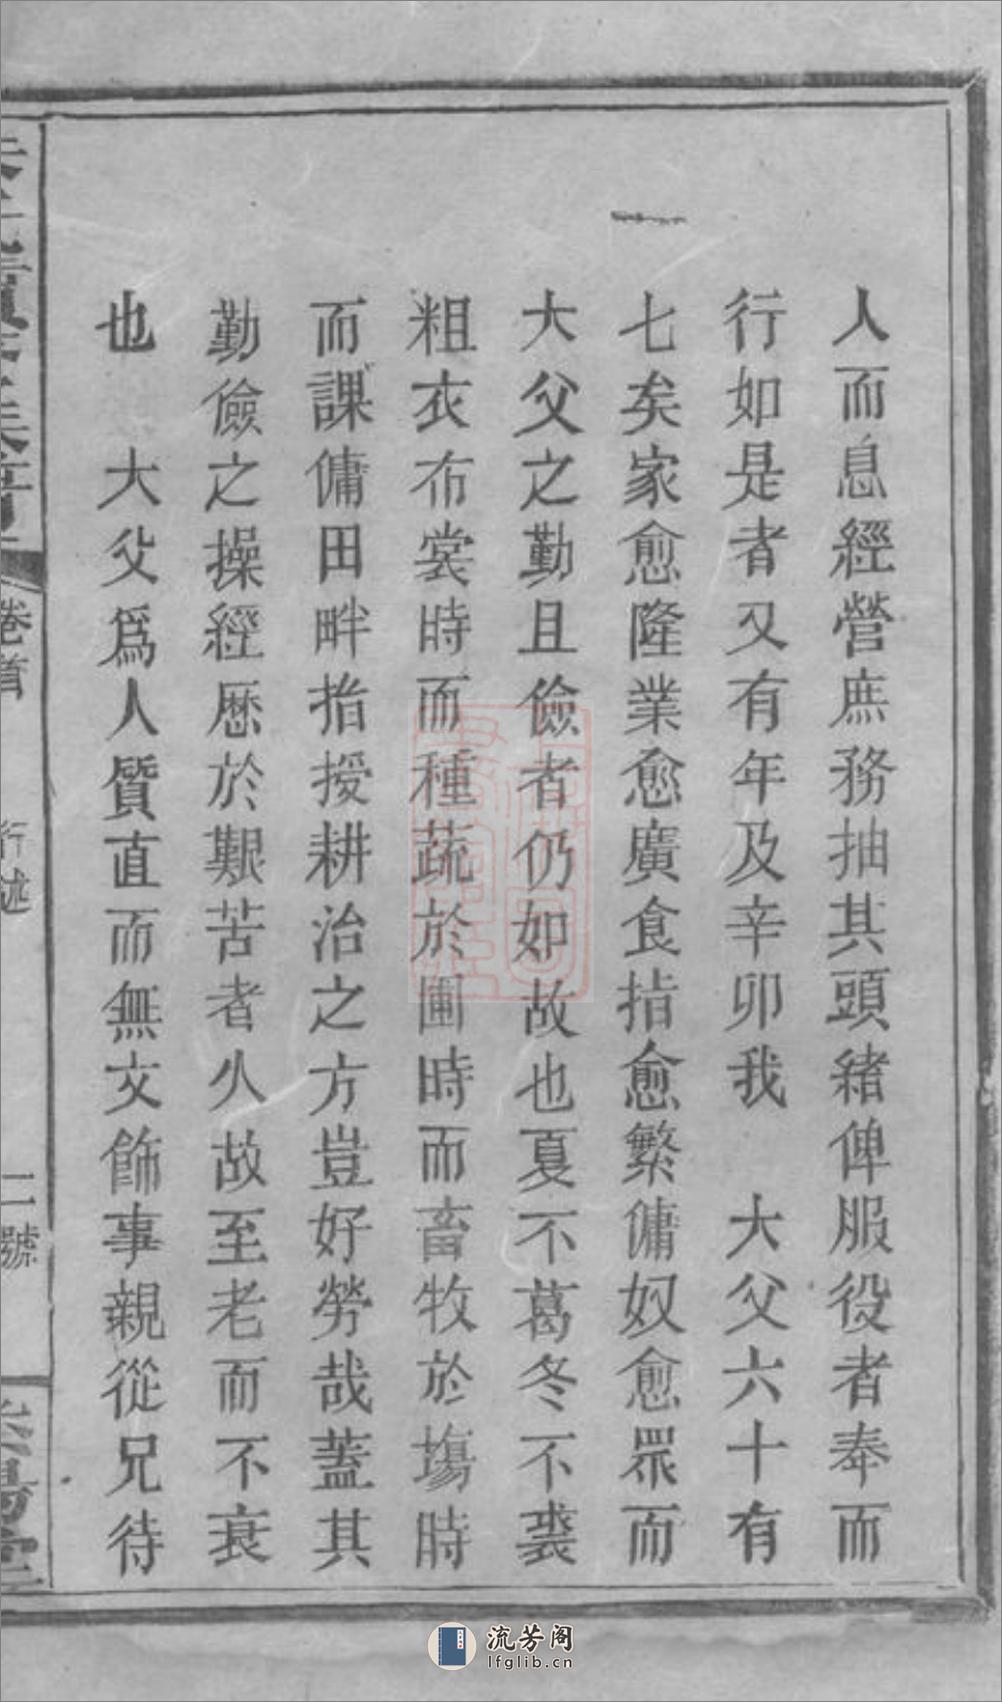 人而息經營庶務抽其頭緒俾服役者奉而
行如是者又有年及辛卯我　大父六十有
七矣家愈隆業愈廣食指愈繁傭奴愈眾而
大父之勤且儉者仍如故也夏不葛冬不裘
粗衣布裳時而種蔬於圃時而畜牧於塲時
而課傭田畔指授耕治之方豈好勞哉蓋其
勤儉之操經歷於艱苦者久故至老而不衰
也　大父爲人質直而無文飾事親從兄待
卷首
行述
二號
流芳阁
lfglib.cn